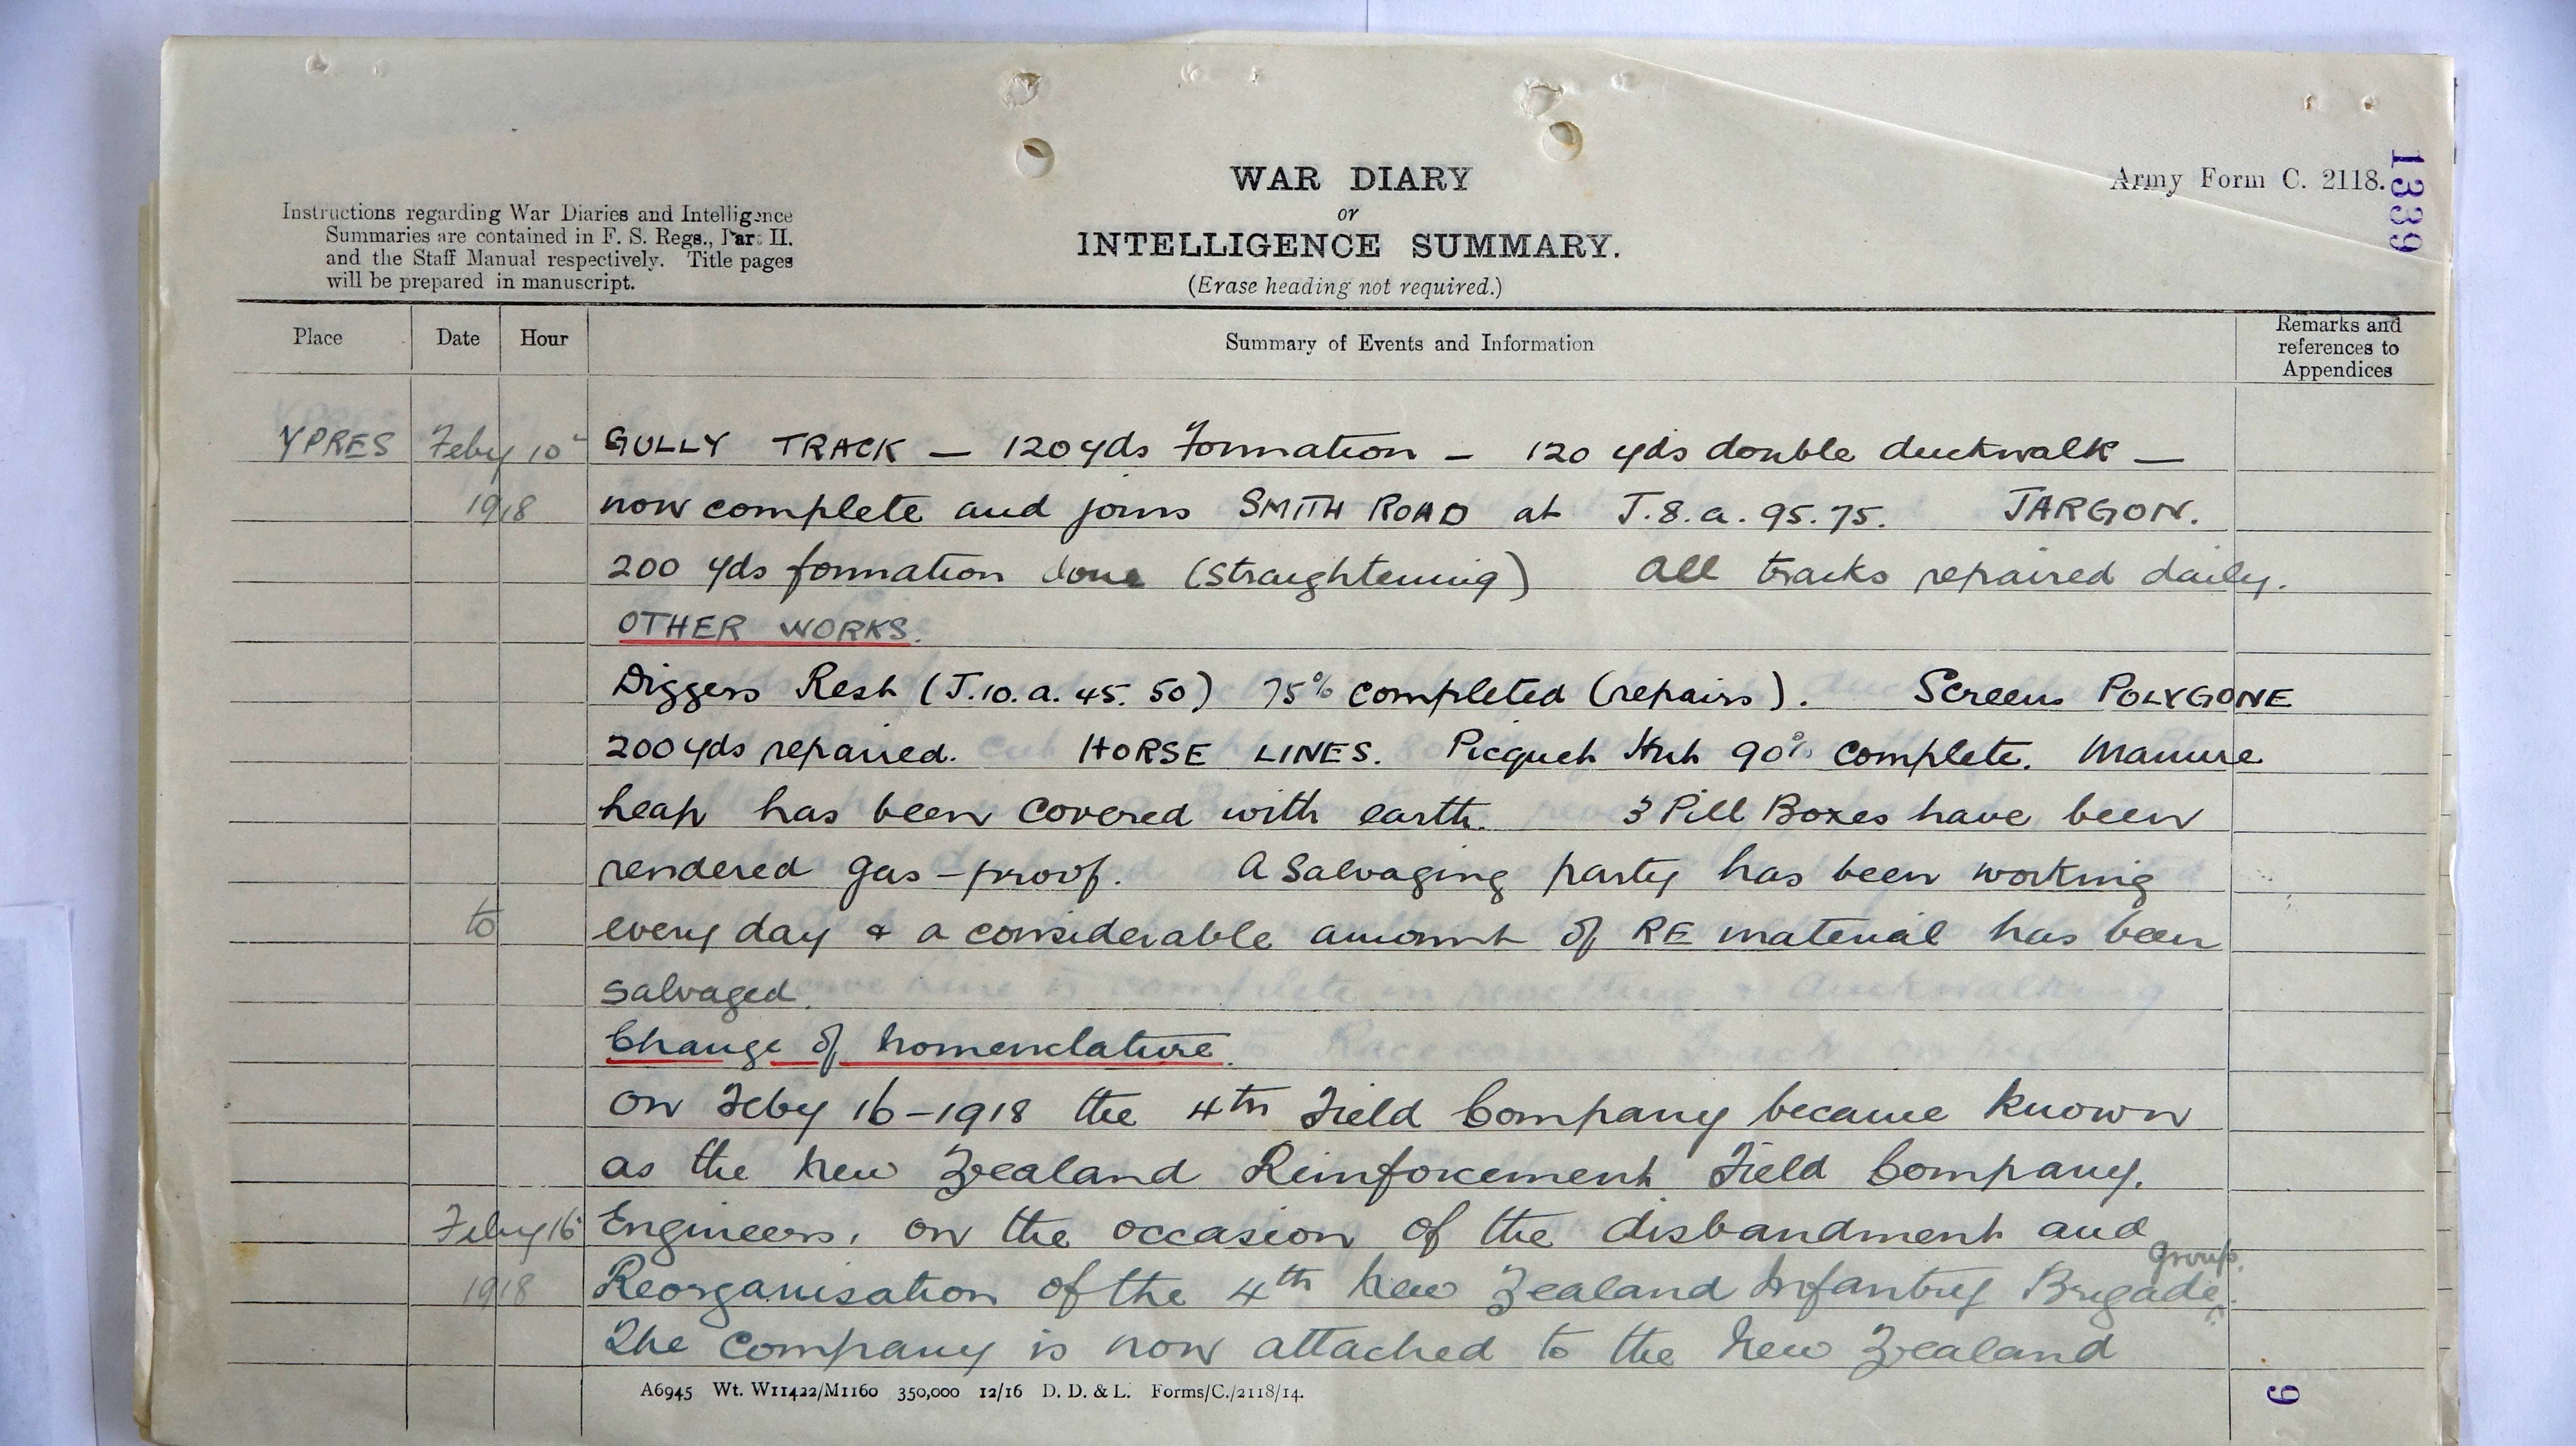 WAR DIARY
or
INTELLIGENCE SUMMARY.
(Erase heading not required.)
Army Form C. 2118.
1339
Instructions regarding War Diaries and Intelligence
Summaries are contained in F. S. Regs., Part II.
and the Staff Manual respectively. Title pages
will be prepared in manuscript.
Place Date Hour Summary of Events and Information Remarks and
references to
Appendices
YPRES Feby 10 GULLY TRACK — 120 yds Formation — 120 yds double duckwalk —
1918 now complete and joins SMITH ROAD at J.8.a.95.75. JARGON.
200 yds formation done (straightening) All tracks repaired daily.
OTHER WORKS.
Diggers Rest (J.10.a.45.50) 75% completed (repairs). Screens POLYGONE
200 yds repaired. HORSE LINES. Picquet Hut 90% complete. Manure
heap has been covered with earth. 3 Pill Boxes have been
rendered gas-proof. A Salvaging party has been working
to every day & a considerable amount of RE material has been
salvaged.
Change of Nomenclature.
On Feby 16-1918 the 4th Field Company became known
as the New Zealand Reinforcement Field Company,
Feby 16 Engineers, on the occasion of the disbandment and
1918 Reorganisation of the 4th New Zealand Infantry Brigade group.
The Company is now attached to the New Zealand
A6945 Wt. W11422/M1160 350,000 12/16 D. D. & L. Forms/C./2118/14.
9